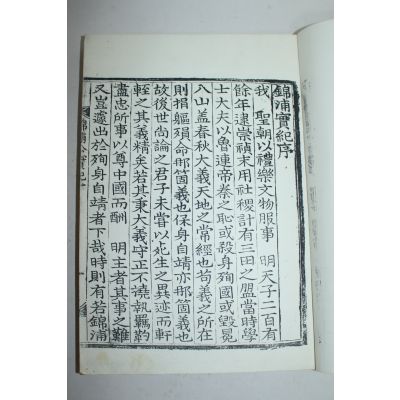 錦浦實紀序
我 聖朝以禮樂文物服事 明天子二百有
餘年逮崇禎末用社稷計有三田之盟當時學
士大夫以魯連帝秦之恥或殺身殉國或毀冕
入山盖春秋大義天地之常經也苟義之所在
則捐軀殞命那箇義也保身自靖亦那箇義也
故後世尚論之君子未嘗以死生之異迹而軒
輊之其義精矣若其秉大義守正不撓執羈靮
盡忠所事以尊中國而酬 明主者其事之難
又豈遽出於殉身自靖者下哉時則有若錦浦